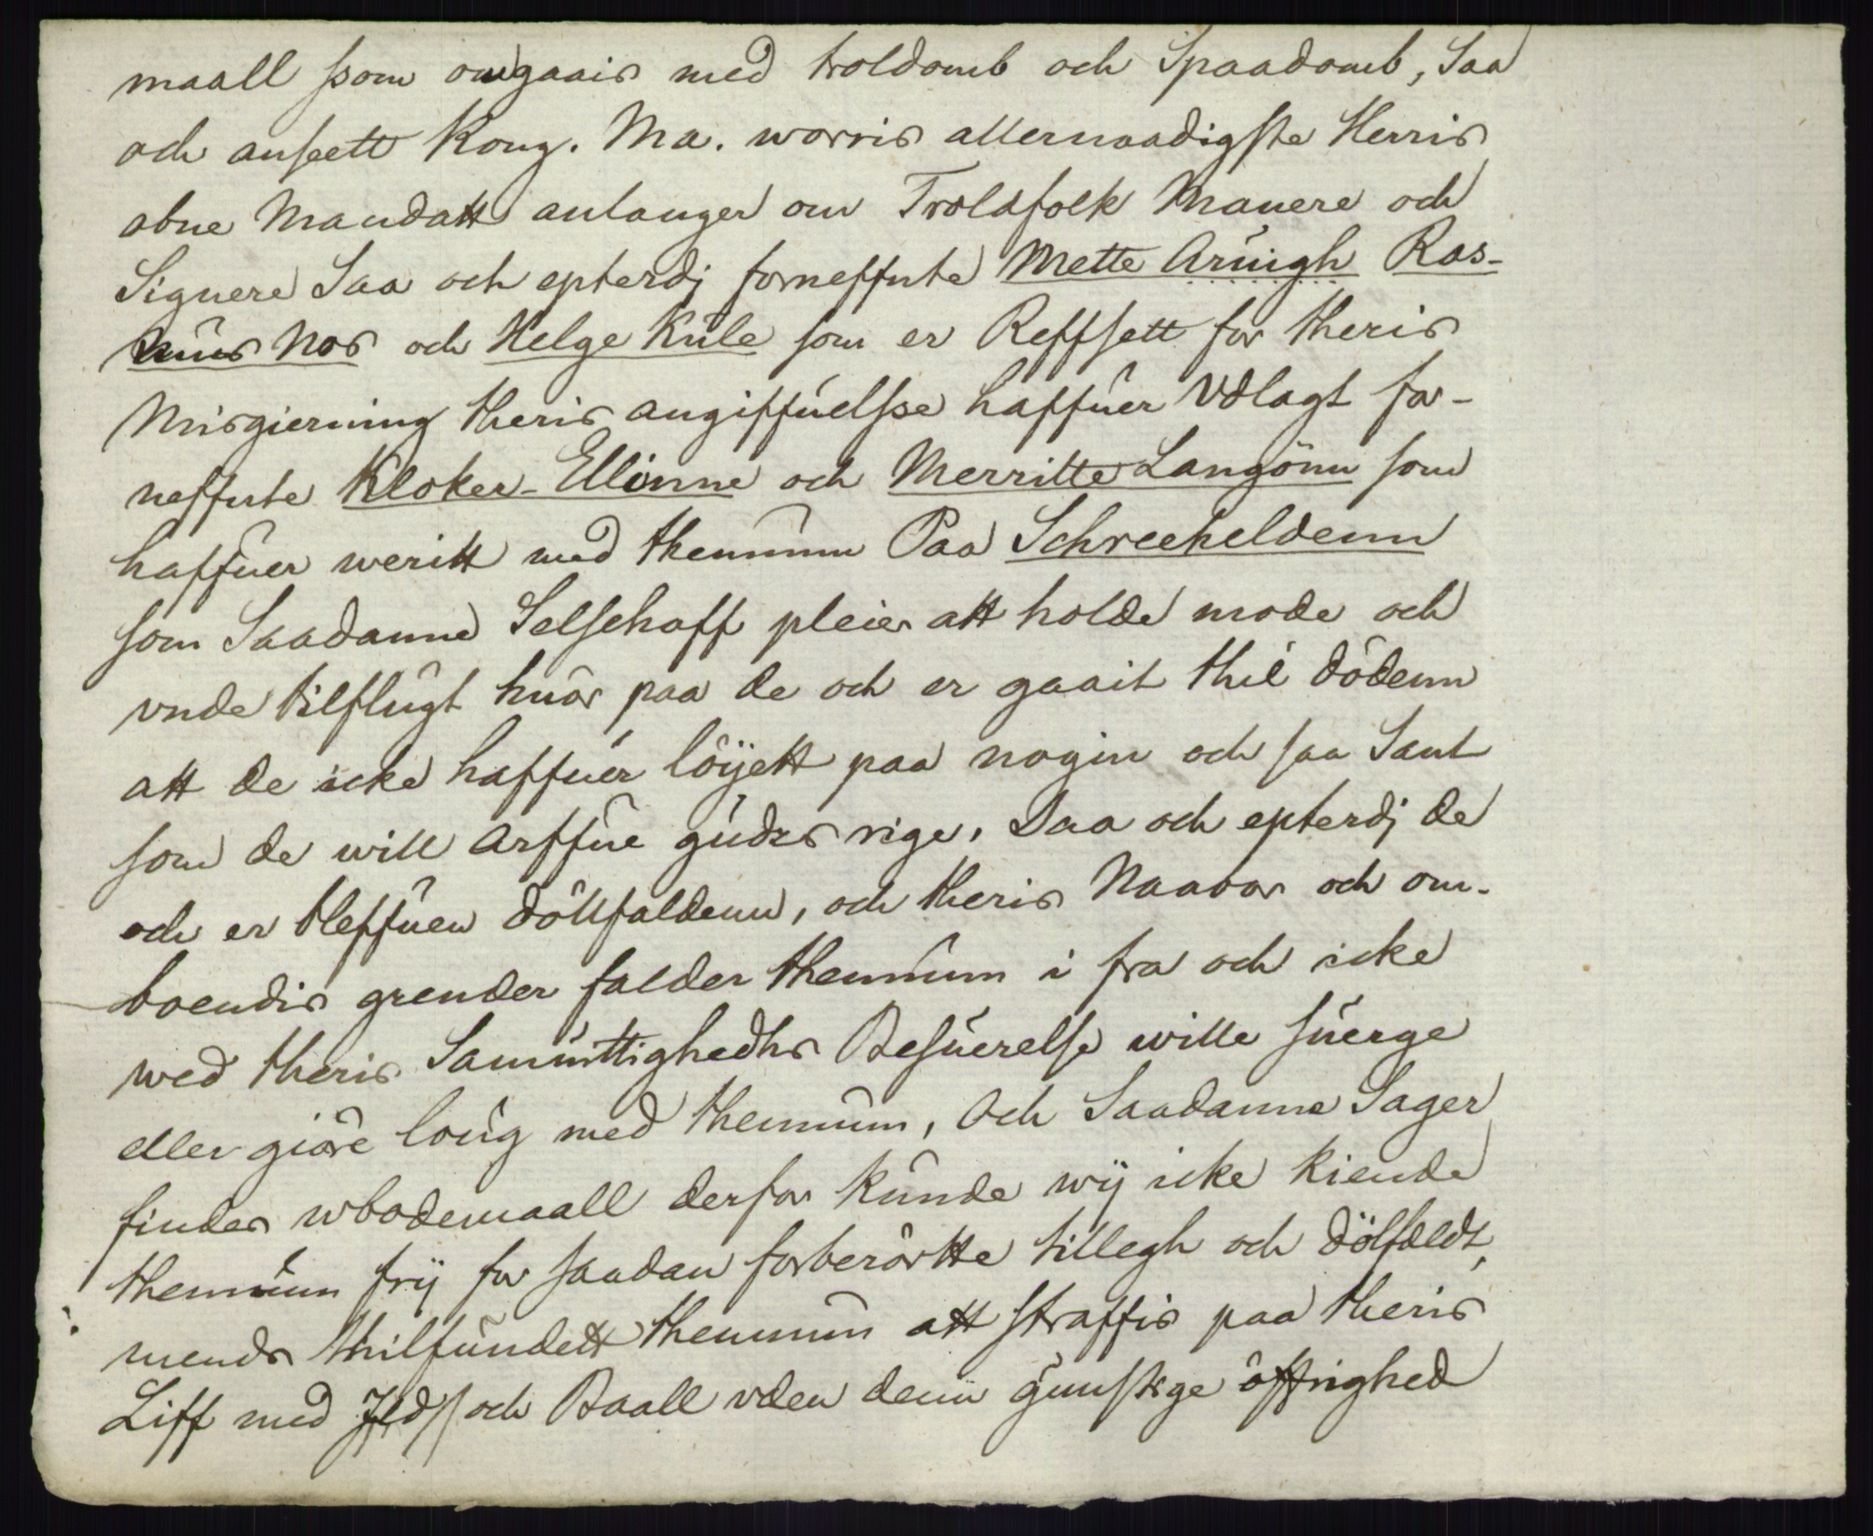 maall ssom omgaais med troldomb och Spaadomb, Saa
och anseett Kong. Ma. worris allernaadigste Herris
abne Mandatt anlanger om Troldfolk Manere och
Signere Saa och epterdj forneffnte Mette Aruigh Ras-
mus Nos och Helge Kule som er Reffsett for theris
Misgierning theris angiffuelsse haffuer Vdlagt for-
neffnte Kloker-Ellinne och Merritte Langönn som
haffuer weritt med themmum Paa Schreekeldenn
som Saadanne Selschaff pleier att holde mode och
vnde tilflugt huor paa de och er gaait thil dödenn
att de icke haffuer löyett paa nogin och saa Sant
som de will arffue gudz rige. Daa och epterdj de
och er bleffuen döllfaldenn, och theris Naaar och om-
boendis grender falder themmum i fra och icke
wed theris Samuittighedhs Besuerelse wille suerge
eller giöre loug med themmum, Och Saadanne Sager
findes wbodemaall derfor kunde wij icke kiende
themmum frij for saadan forberörtte tillegh och dölfeldt,
mends thilfundett themmum att straffis paa theris
Liff med Jld och Baall vden denn gunstige öffrighed